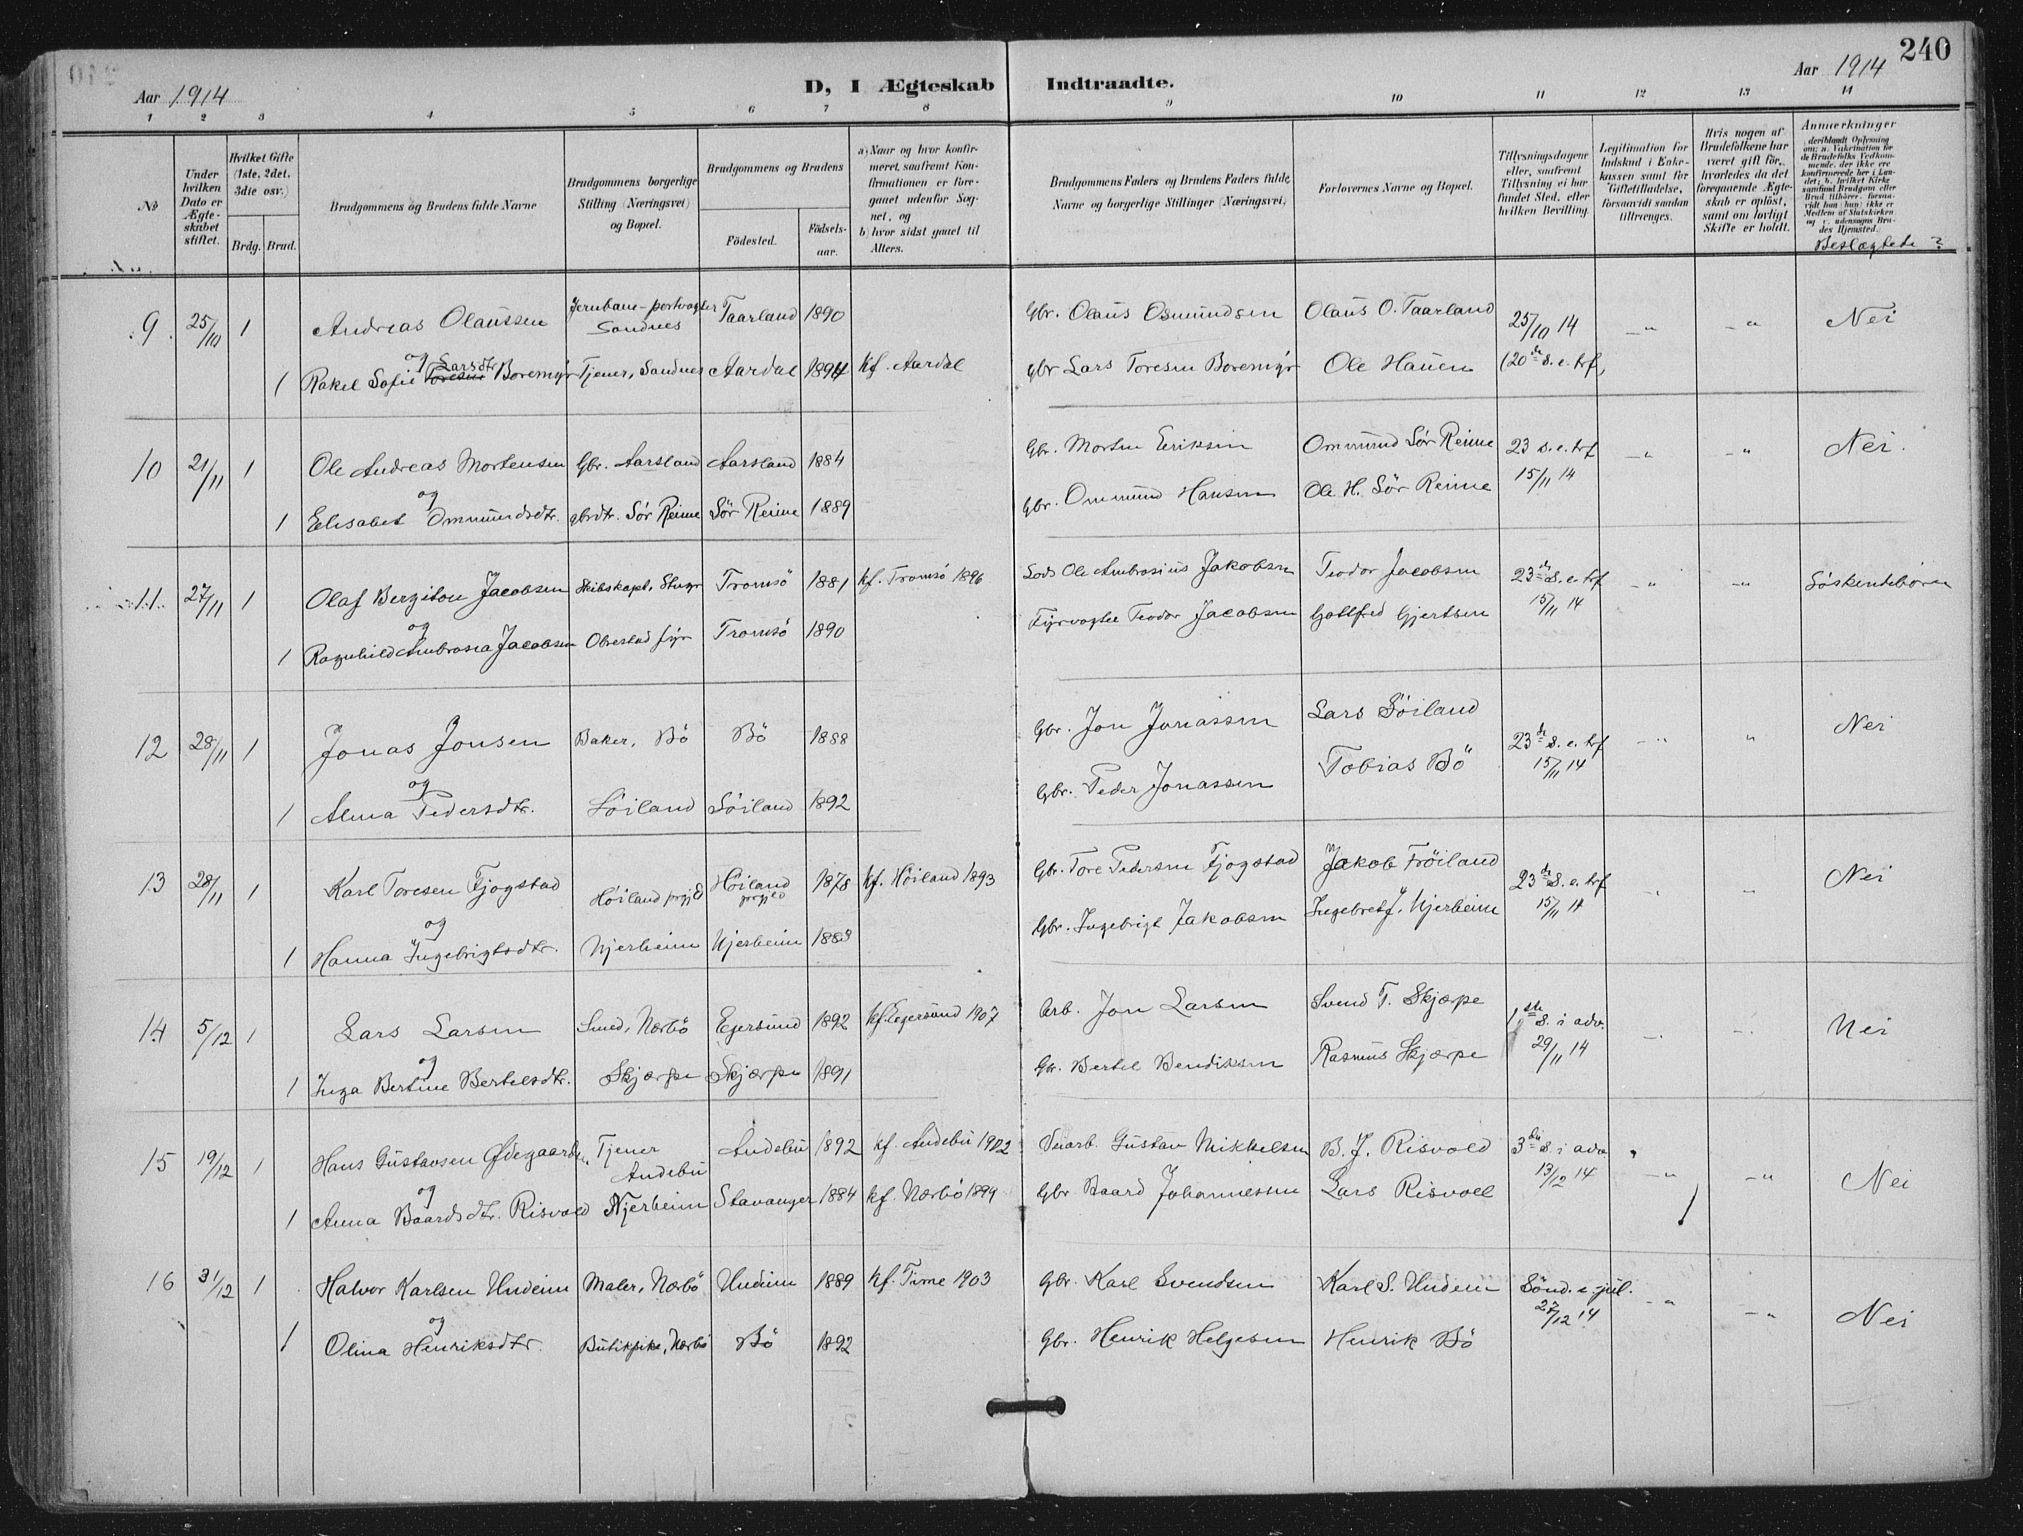 240
Aar 1914
D, I Ægteskab Indtraadte.
Aar 1914
1 2 3 4 5 6 7 8 9 10 11 12 13 14
No
Under hvilken Dato er Ægteskabet stiftet.
Hvilket Gifte (1ste, 2det, 3die osv.)
Brdg. Brud.
Brudgommens og Brudens fulde Navne
Brudgommens borgerlige Stilling (Næringsvei) og Bopæl.
Brudgommens og Brudens
Födested. Födsels-aar.
a) Naar og hvor konfirmeret, saafremt Konfirmationen er foregaaet udenfor Sognet, og
b) hvor sidst gaaet til Alters.
Brudgommens Faders og Brudens Faders fulde Navne og borgerlige Stillinger (Næringsvei)
Forlovernes Navne og Bopæl.
Tillysningsdagene eller, saafremt Tillysning ei har fundet Sted, efter hvilken Bevilling.
Legitimation for Indskud i Enkekassen samt for Giftetilladelse, forsaavidt saadan tiltrænges.
Hvis nogen af Brudefolkene har været gift för, hvorledes da det foregaaende Ægteskab er oplöst, samt om lovligt Skifte er holdt.
Anmerkninger
Beslægtede?
9 25/10 1 Andreas Olaussen Jernbane-portvogter Sandnes Taarland 1890 Gbr. Olaus Osmundsen Olaus O. Taarland 25/10 14 -"- -"- Nei
og
1 Rakel Sofie Toresen Larsdtr Boremyr Tjener, Sandnes Aardal 1894 kf. Aardal gbr Lars Toresen Boremyr Ole Hauen (20de s. e. trf.
10 21/11 1 Ole Andreas Mortensen Gbr. Aarsland Aarsland 1884 Gbr. Morten Eriksen Ommund Sör Reime 23 s. e. trf 15/11 14 -"- -"- Nei.
og
1 Elisabet Ommundsdtr. gbrdtr. Sör Reime Sör Reime 1889 Gbr. Ommund Hansen Ole H. Sör Reime
11 27/11 1 Olaf Berziton Jacobsen Skibskapt, Tromsö 1881 kf. Tromsö 1896 Lods Ole Ambrosius Jakobsen Teodor Jacobsen 23de s. e. trf 15/11 14 -"- -"- Söskendebörn
og
1 Ragnhild Ambrosia Jacobsen Obrestad fyr Tromsö 1890 Fyrvogter Teodor Jacobsen Gottfred Gjertsen
12 28/11 1 Jonas Jonsen Baker, Bö Bö 1888 Gbr. Jon Jonassen Lars Söiland 23de s. e. trf 15/11 14 -"- " Nei
og
1 Alma Pedersdtr. Söiland Söiland 1892 Gbr. Peder Jonassen Tobias Bö
13 28/11 1 Karl Toresen Fjogstad Höiland prgjeld Höiland prgjeld 1878 kf. Höiland 1893 Gbr. Tore Pedersen Fjogstad Jakob Fröiland 23de s. e. trf 15/11 14 " " Nei
og
1 Hanna Ingebrigtsdtr. Njerheim Njerheim 1883 Gbr. Ingebrigt Jakobsen Ingebret J. Njerheim
14 5/12 1 Lars Larsen Smed, Nærbö Egersund 1892 kf. Egersund 1907 Arb. Jon Larsen Svend T. Skjærpe 1ste s. i adv. 29/11 14 Nei
og
1 Inga Bertine Bertelsdtr. Skjærpe Skjærpe 1891 Gbr. Bertel Bendiksen Rasmus Skjærpe
15 19/12 1 Hans Gustavsen Ødegaarden Tjener Andebu Andebu 1892 kf. Andebu 1902 Gustav Mikkelsen B. J. Risvold 3die s. i adv 13/12 14 -"- -"- Nei
og
1 Anna Baardsdtr. Risvold Njerheim Stavanger 1884 kf. Nærbö 1899 Gbr Baard Johannessen Lars Risvold
16 31/12 1 Halvor Karlsen Undeim Maler, Nærbö Undeim 1889 kf. Time 1903 Gbr. Karl Svendsen Karl S. Undeim Sönd. e. jul. 27/12 14 -"- -"- Nei
og
1 Olina Henriksdtr. Butikpike, Nærbö Bö 1892 Gbr. Henrik Helgesen Henrik Bö